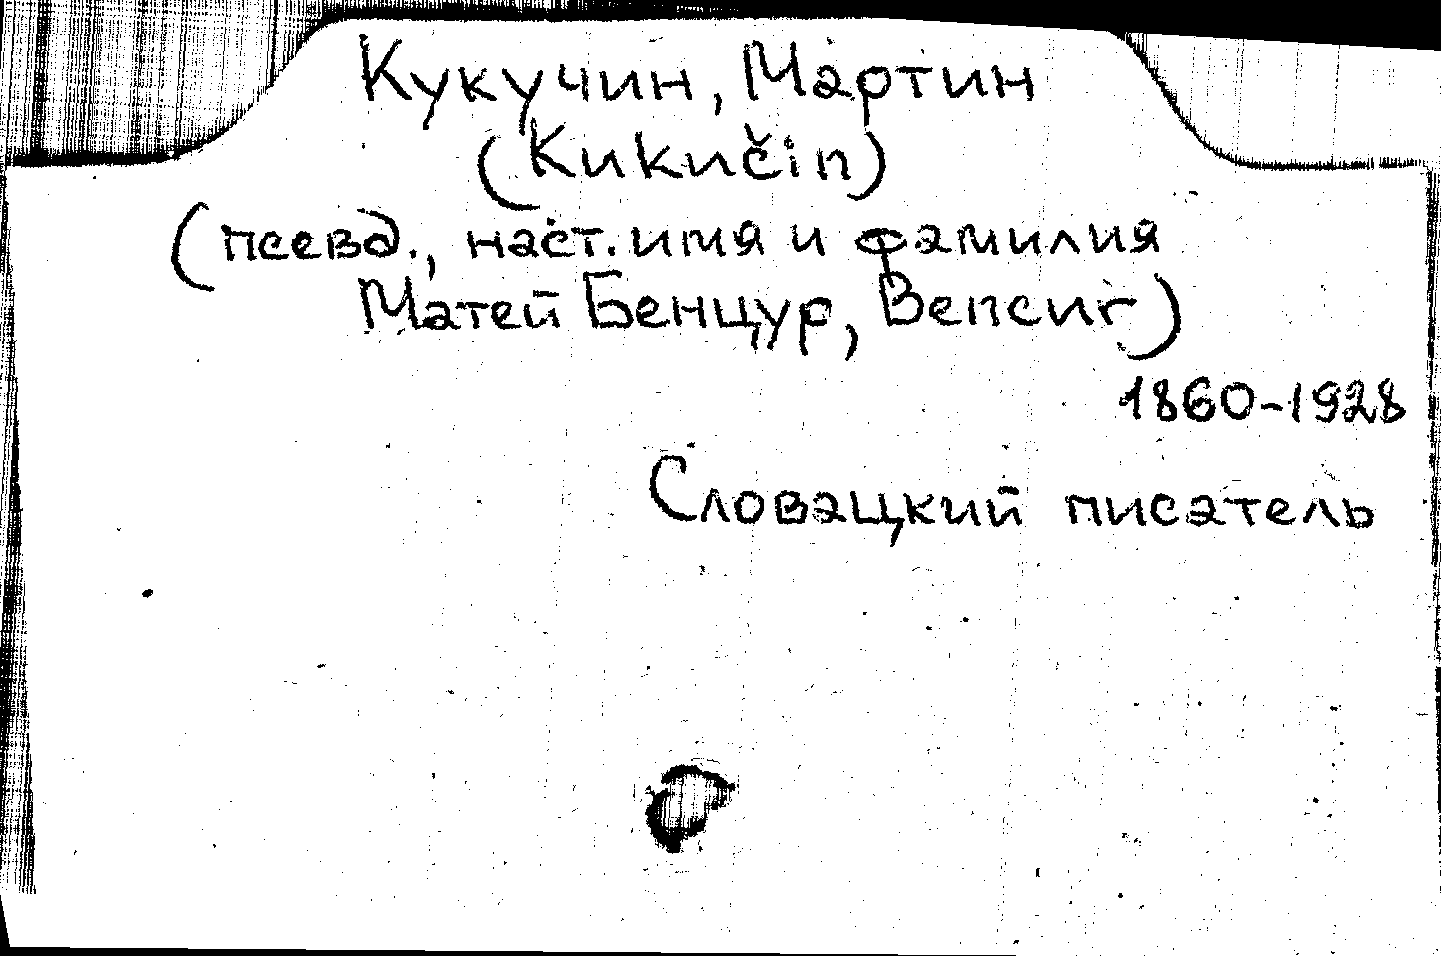 Кукучин, Мартин
(Kukučin)
(псевд., наст. имя и фамилия
Матей Бенцур, Bencur)
1860-1928
Словацкий писатель